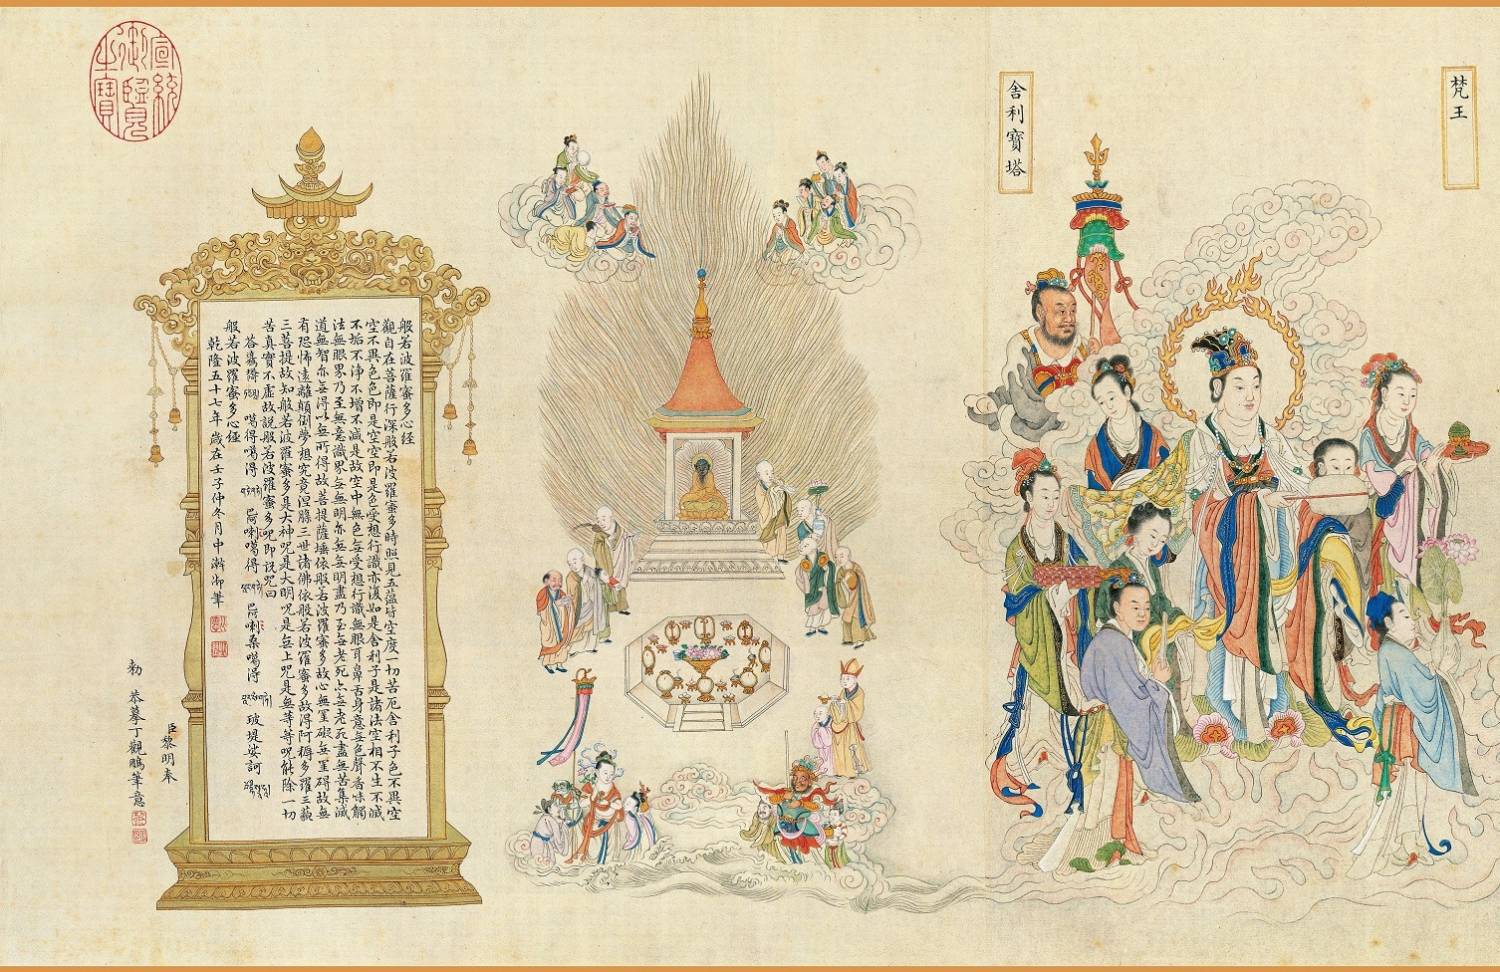 梵王
舍利寶塔
般若波羅蜜多心経
觀自在菩薩行深般若波羅蜜多時照見五蘊皆空度一切苦厄舍利子色不異空
空不異色色即是空空即是色受想行識亦復如是舍利子是諸法空相不生不滅
不垢不淨不增不減是故空中無色無受想行識無眼耳鼻舌身意無色聲香味觸
法無眼界乃至無意識界無無明亦無無明盡乃至無老死亦無老死盡無苦集滅
道無智亦無得以無所得故菩提薩埵依般若波羅蜜多故心無罣礙無罣碍故無
有恐怖遠離顛倒夢想究竟涅槃三世諸佛依般若波羅蜜多故得阿耨多羅三藐
三菩提故知般若波羅蜜多是大神咒是大明咒是無上咒是無等等咒能除一切
苦真實不虛故說般若波羅蜜多咒即說咒曰
噶得噶得 喇噶得 喇桑噶得 玻堤娑訶
般若波羅蜜多心経
乾隆五十七年歲在壬子仲冬月中澣御筆
臣黎明奉
勅恭摹丁觀鵬筆意
宣統御覽之寶